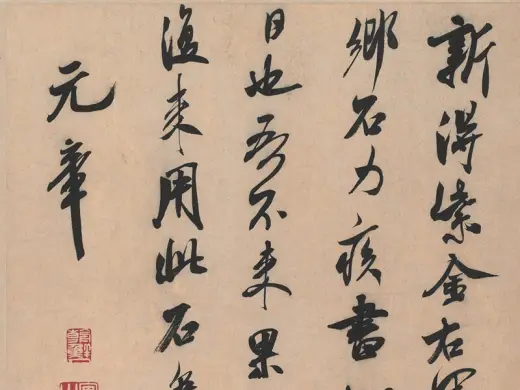 新得紫金右
鄉石力疾書
日也吾不来果
復来用此石
元章